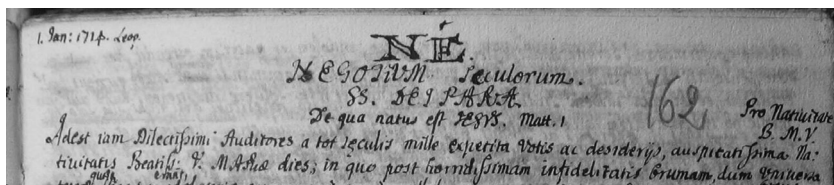 1. Jan: 1714. Leop.
NÉ
NEGOTIUM Seculorum.
SS. DEIPARA
De qua natus est JESUS. Matt. 1
162
Pro Nativitate
B. M. V
Adest iam Dilectissimi Auditores a tot seculis mille expetita votis ac desiderijs, auspicatissima Na-
tivitatis Beatiss: V. MARIÆ dies; in quo post horridissimam infidelitatis brumam, dum universa
quasi